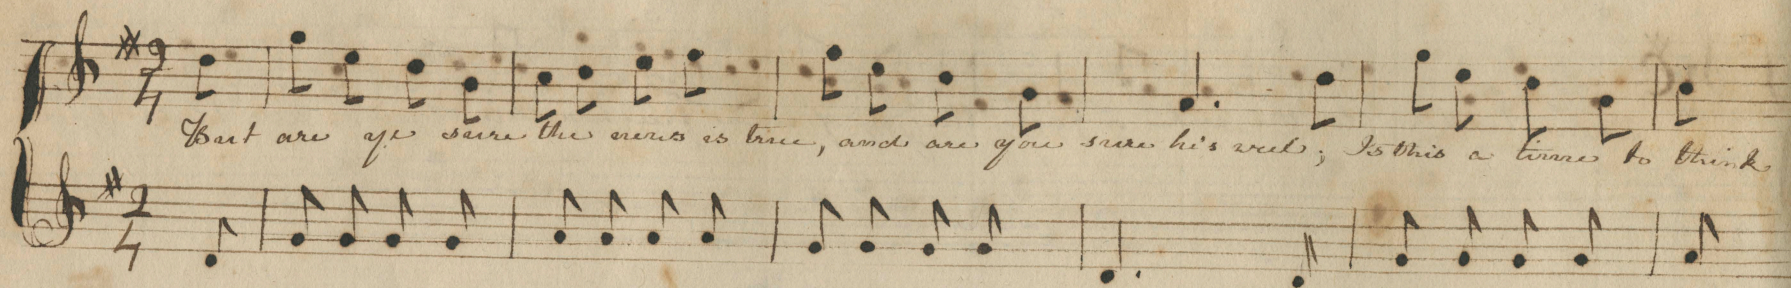 But are ye sure the news is true, and are you sure his wel; Is this a time to think